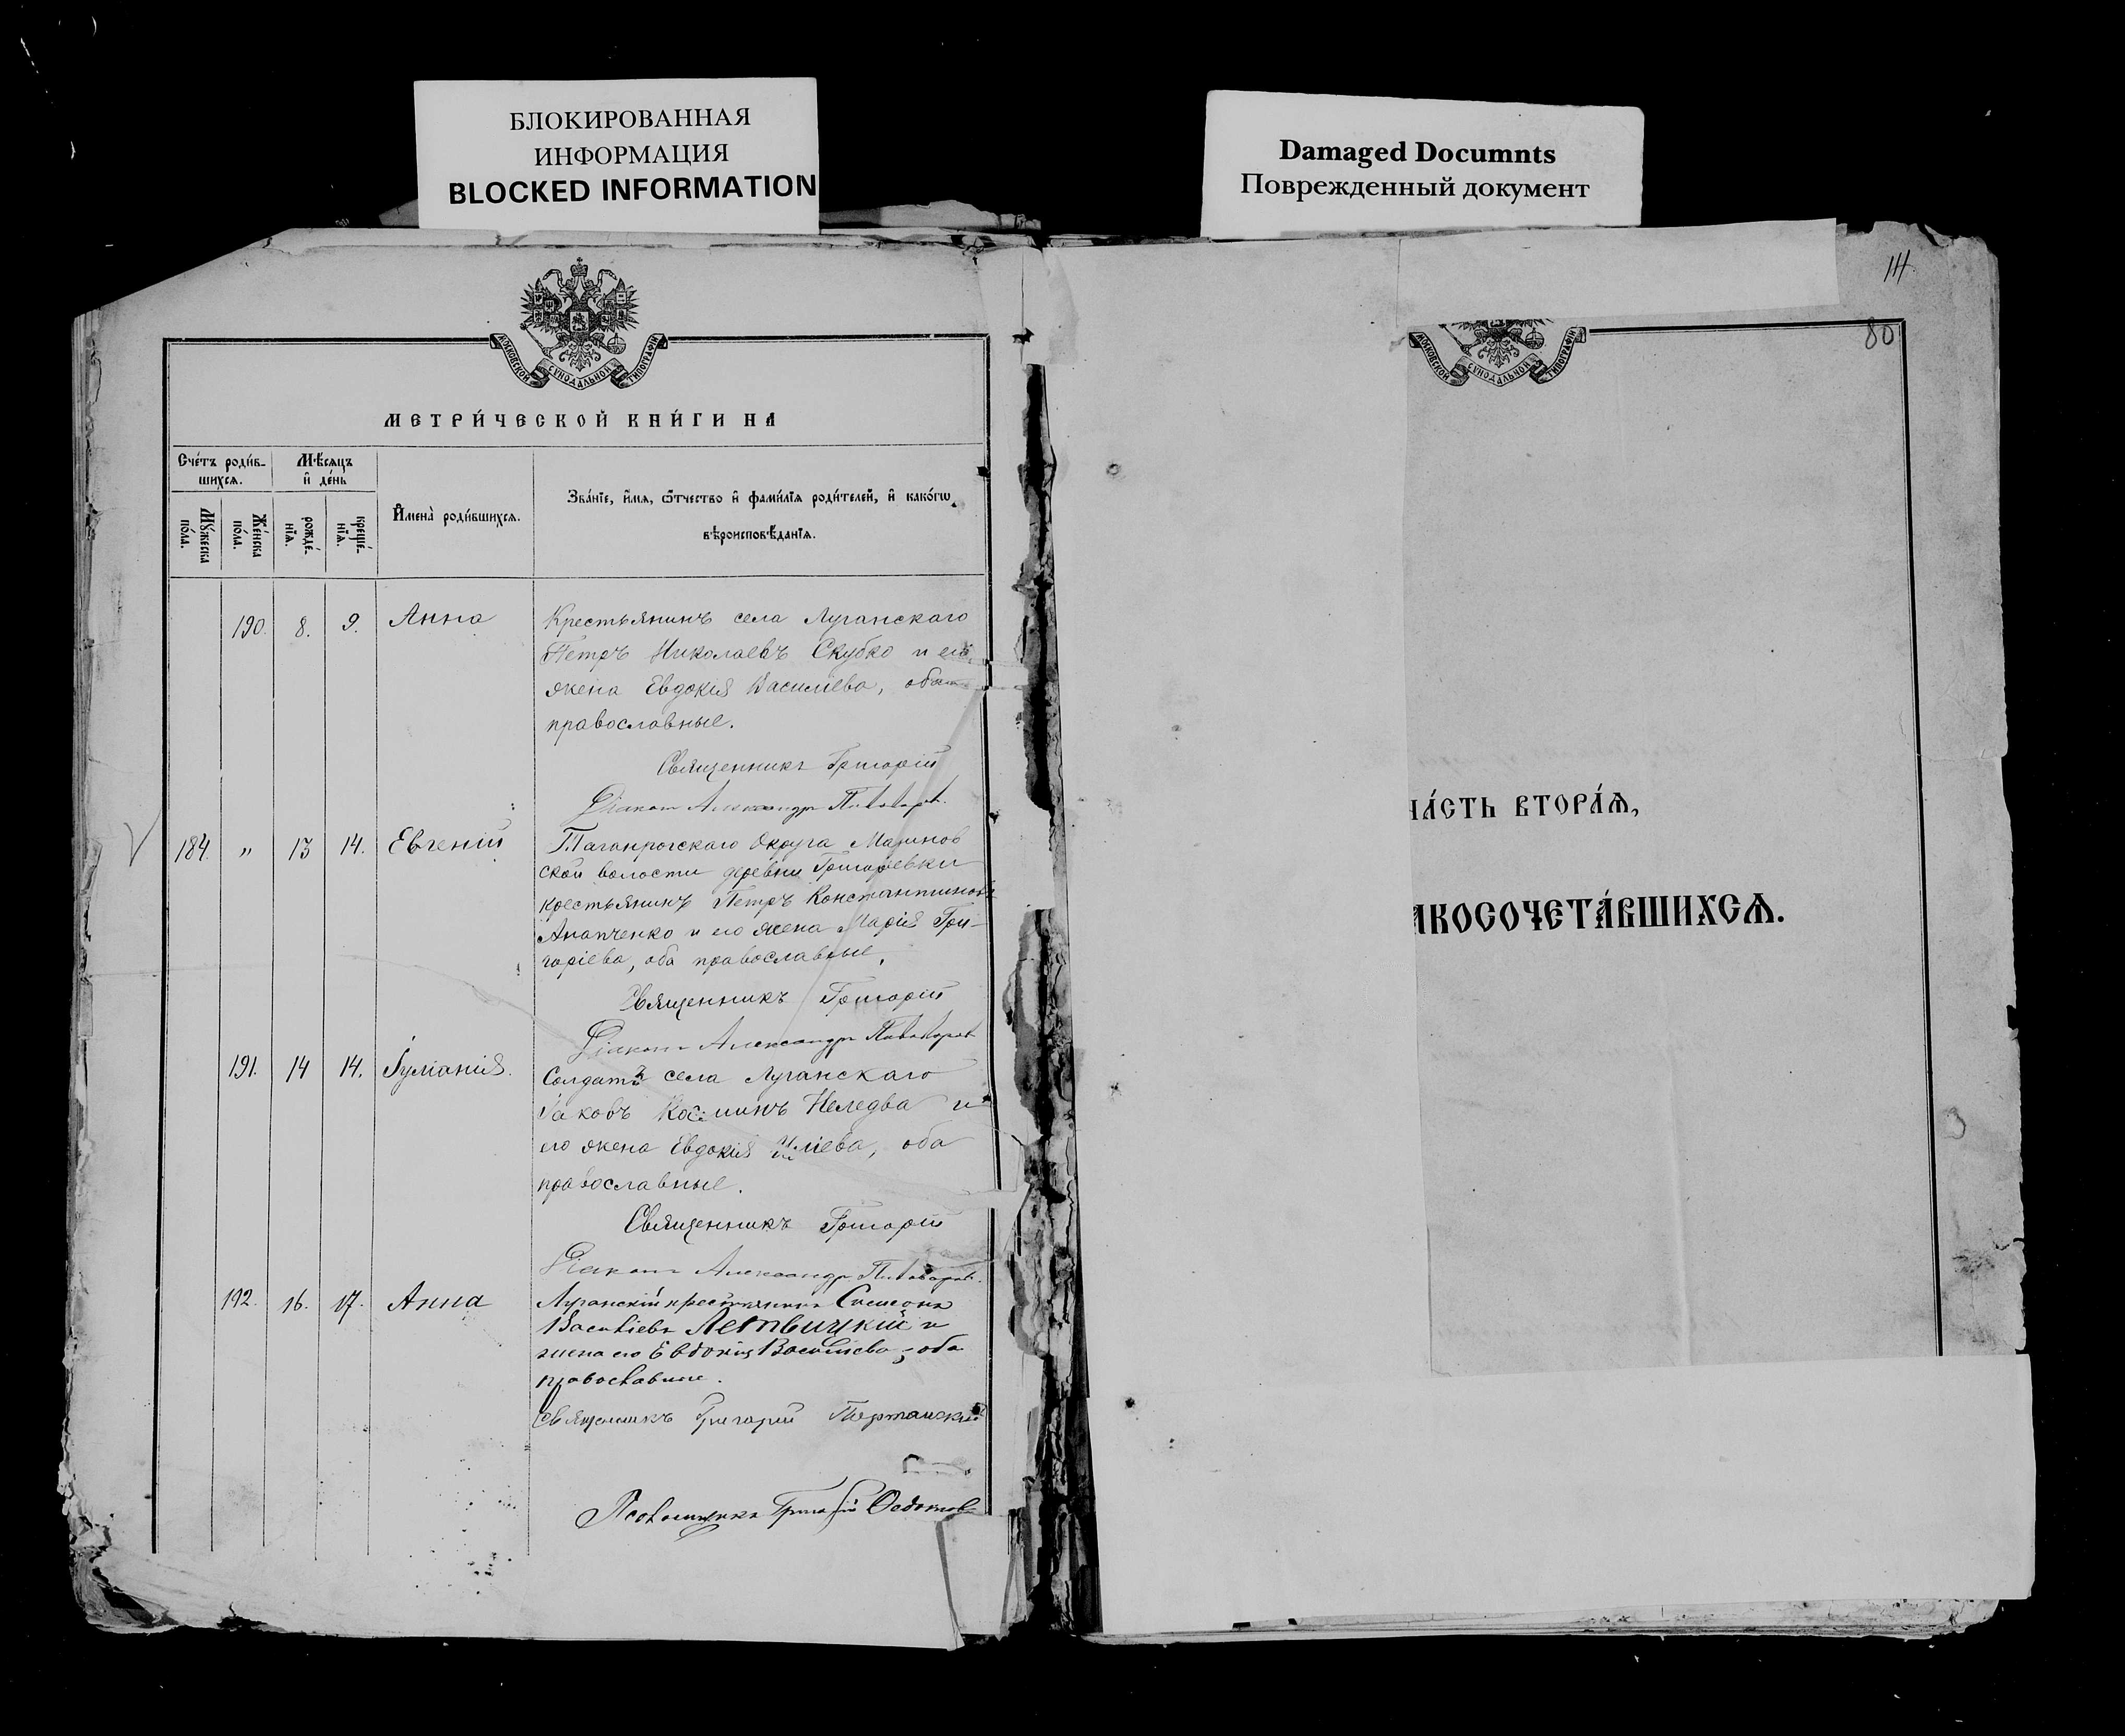 БЛОКИРОВАННАЯ
ИНФОРМАЦИЯ
BLOCKED INFORMATION
Damaged Documnts
Поврежденный документ
МОСКОВСКОЙ СУНОДАЛЬНОЙ ТИПОГРАФІИ
МЕТРИ́ЧЕСКОЙ КНИ́ГИ НА
Сче́тъ роди́в-
шихся.
Мѣ́сяцъ
и҆ де́нь
Му́жеска
по́ла.
Же́нска
по́ла.
рожде́-
нїя.
креще́-
нїя.
И҆мена̀ роди́вшихся.
Зва́нїе, и҆́мя, ѻ҆́тчество и҆ фами́лїя роди́телей, и҆ како́гѡ
вѣроисповѣ́данїя.
190. 8. 9. Анна
Крестьянинъ села Луганскаго
Петръ Николаевъ Скубко и его
жена Евдокія Василіева, оба
православные.
Священникъ Григорій
Діаконъ Александръ Пивоваров
184. " 13 14. Евгеній
Таганрогскаго Округа Мариновской волости деревни Григорьевки
крестьянинъ Петръ Константиновъ
Анапченко и его жена Марія Гри-
горіева, оба православные.
Священникъ Григорій
Діаконъ Александръ Пивоваров
191. 14 14. Іуліанія.
Солдатъ села Луганскаго
Іаковъ Косминъ Неледва и
его жена Евдокія Иліева, оба
православные.
Священникъ Григорій
Діаконъ Александръ Пивоваров
192. 16. 17. Анна
Луганскій крестьянинъ Симеонъ
Василіевъ Летвицкій и
жена его Евдокія Василіева, оба
православные.
Священникъ Григорій
Псаломщикъ Григорій Федотов
111
80
МОСКОВСКОЙ СУНОДАЛЬНОЙ ТИПОГРАФІИ
ЧА́СТЬ ВТОРА́Я,
АКОСОЧЕТА́ВШИХСЯ.